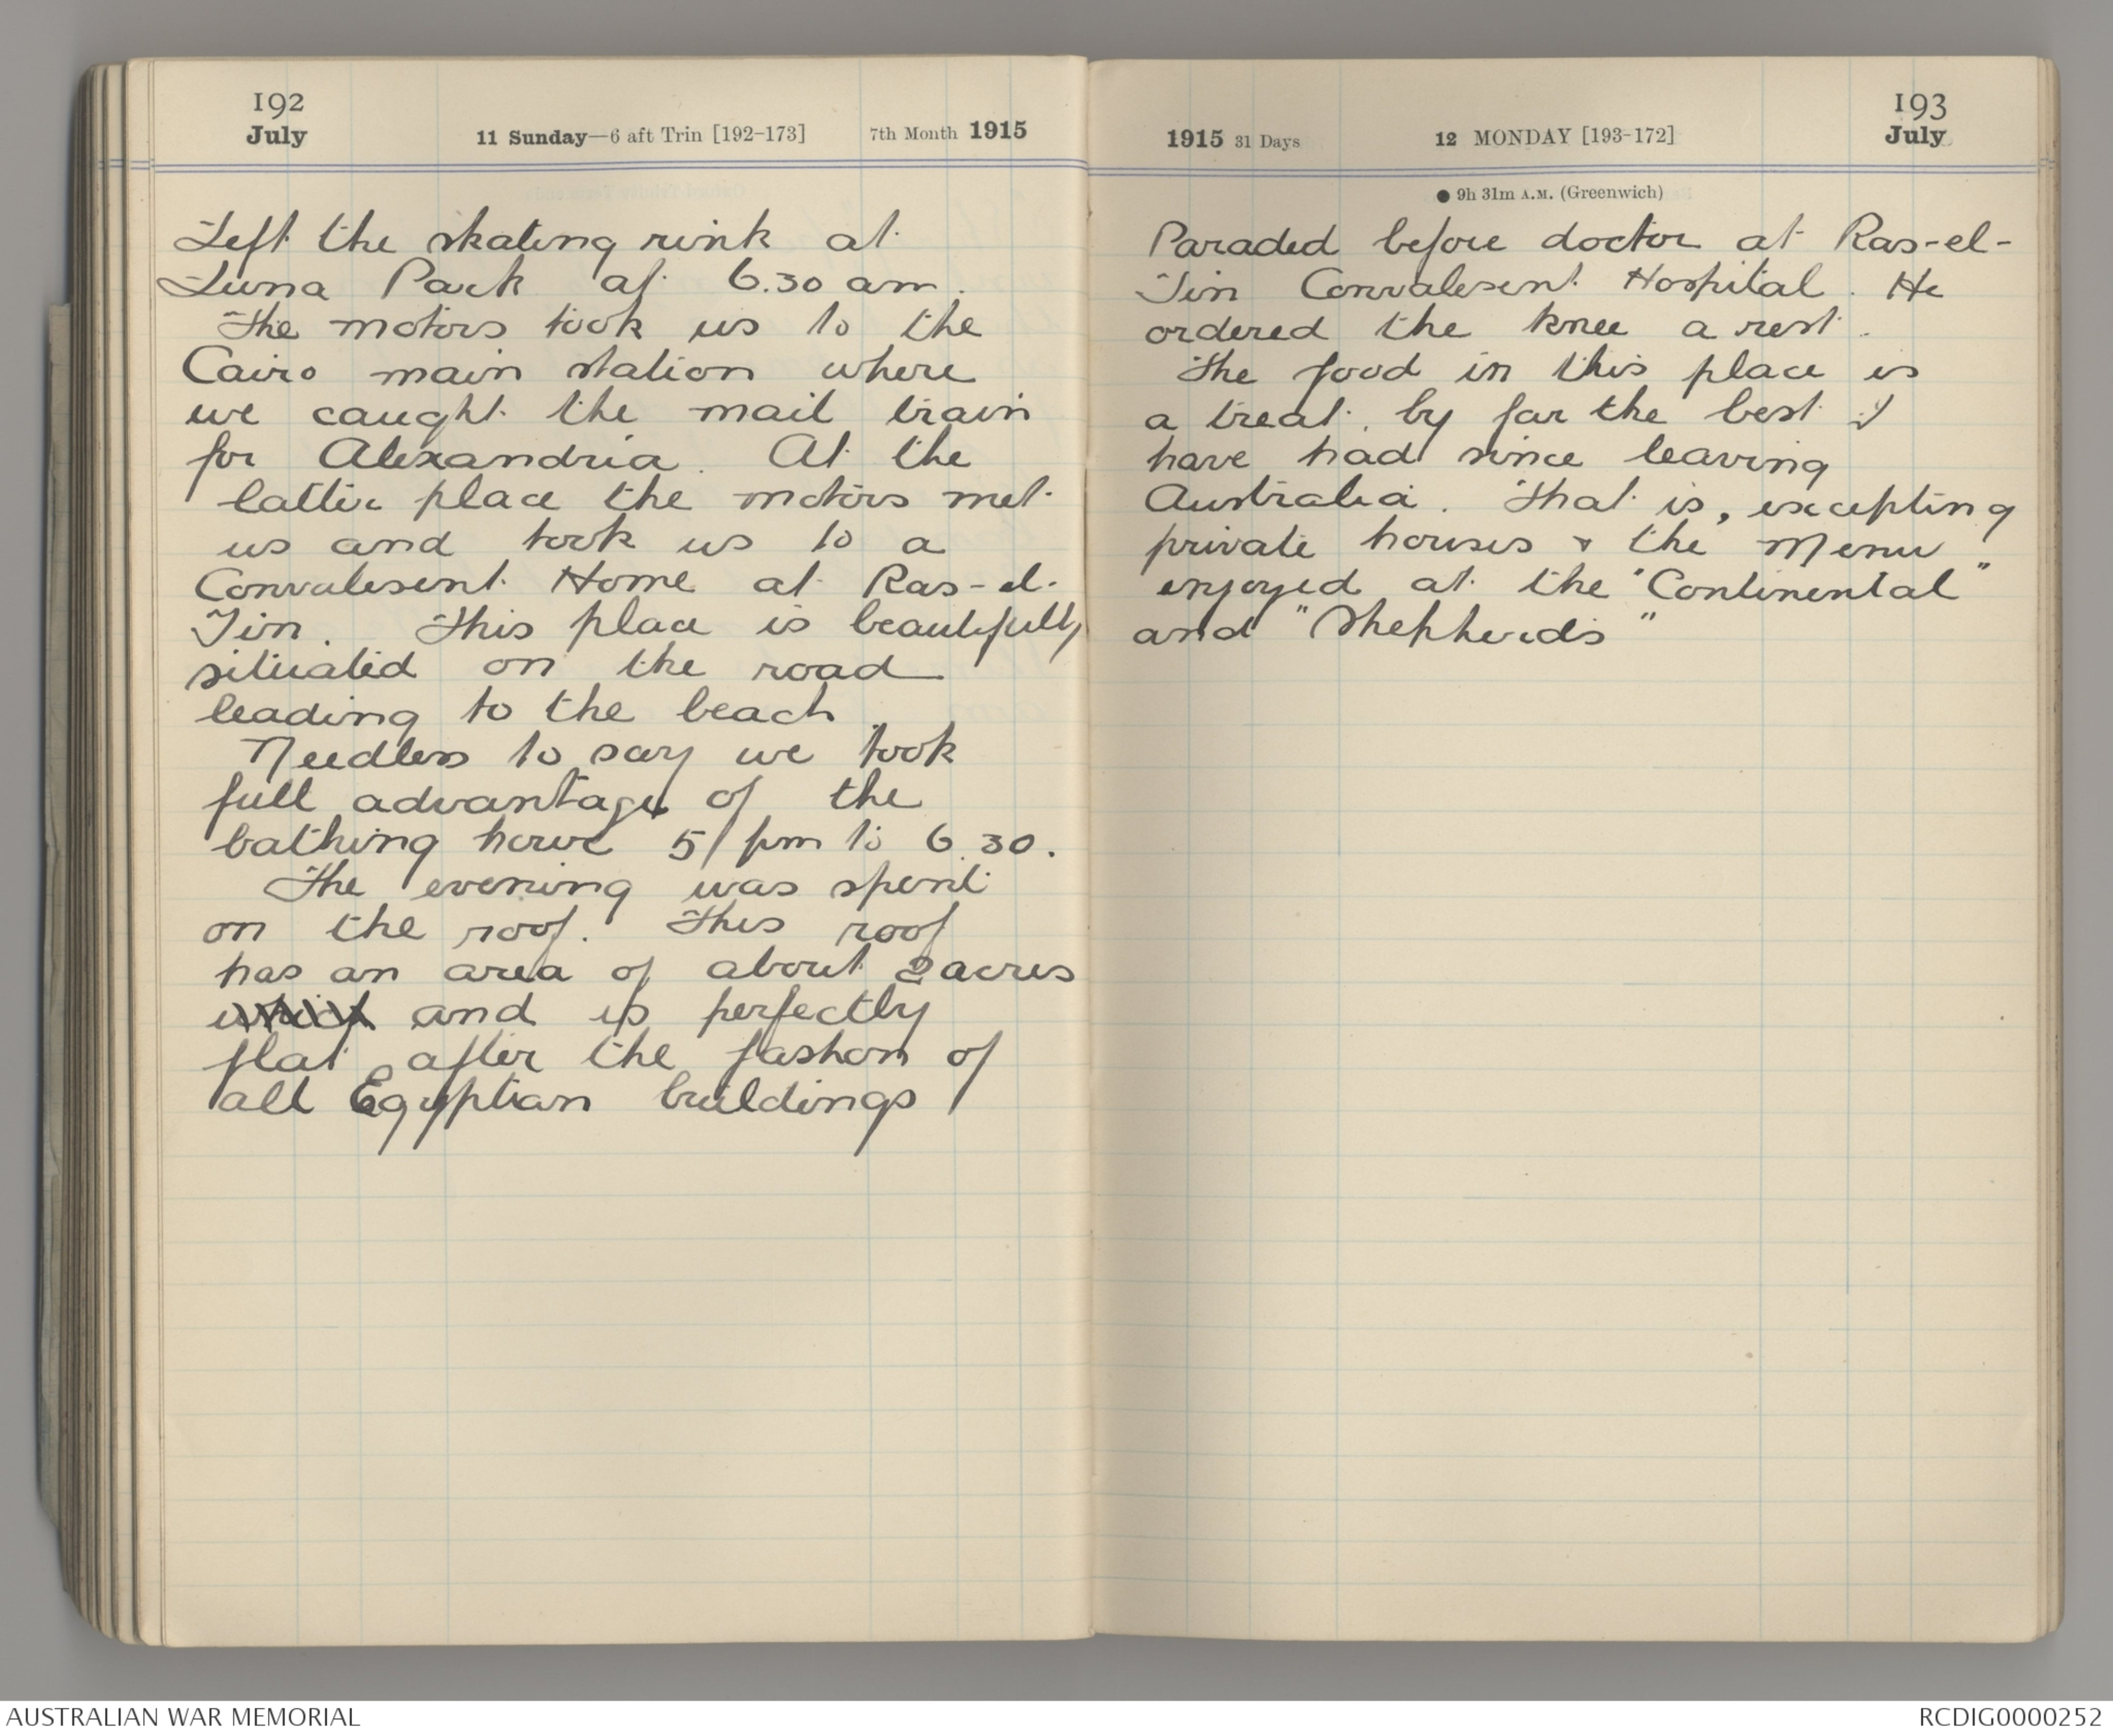 192
July
11 Sunday—6 aft Trin [192-173]
7th Month 1915
Left the skating rink at
Luna Park at 6.30 am.
The motors took us to the
Cairo main station where
we caught the mail train
for Alexandria. At the
latter place the motors met
us and took us to a
Convalesent Home at Ras-el-
Tin. This place is beautifully
situated on the road
leading to the beach.
Needless to say we took
full advantage of the
bathing hour 5/ pm to 6.30.
The evening was spent
on the roof. This roof
has an area of about 2 acres
which and is perfectly
flat after the fashon of
all Egyptian buildings
1915 31 Days
12 MONDAY [193-172]
193
July
● 9h 31m A.M. (Greenwich)
Paraded before doctor at Ras-el-
Tin Convalesent Hospital. He
ordered the knee a rest.
The food in this place is
a treat, by far the best I
have had since leaving
Australia. That is, excepting
private houses & the Menu
enjoyed at the "Continental"
and "Shepherds"
AUSTRALIAN WAR MEMORIAL
RCDIG0000252